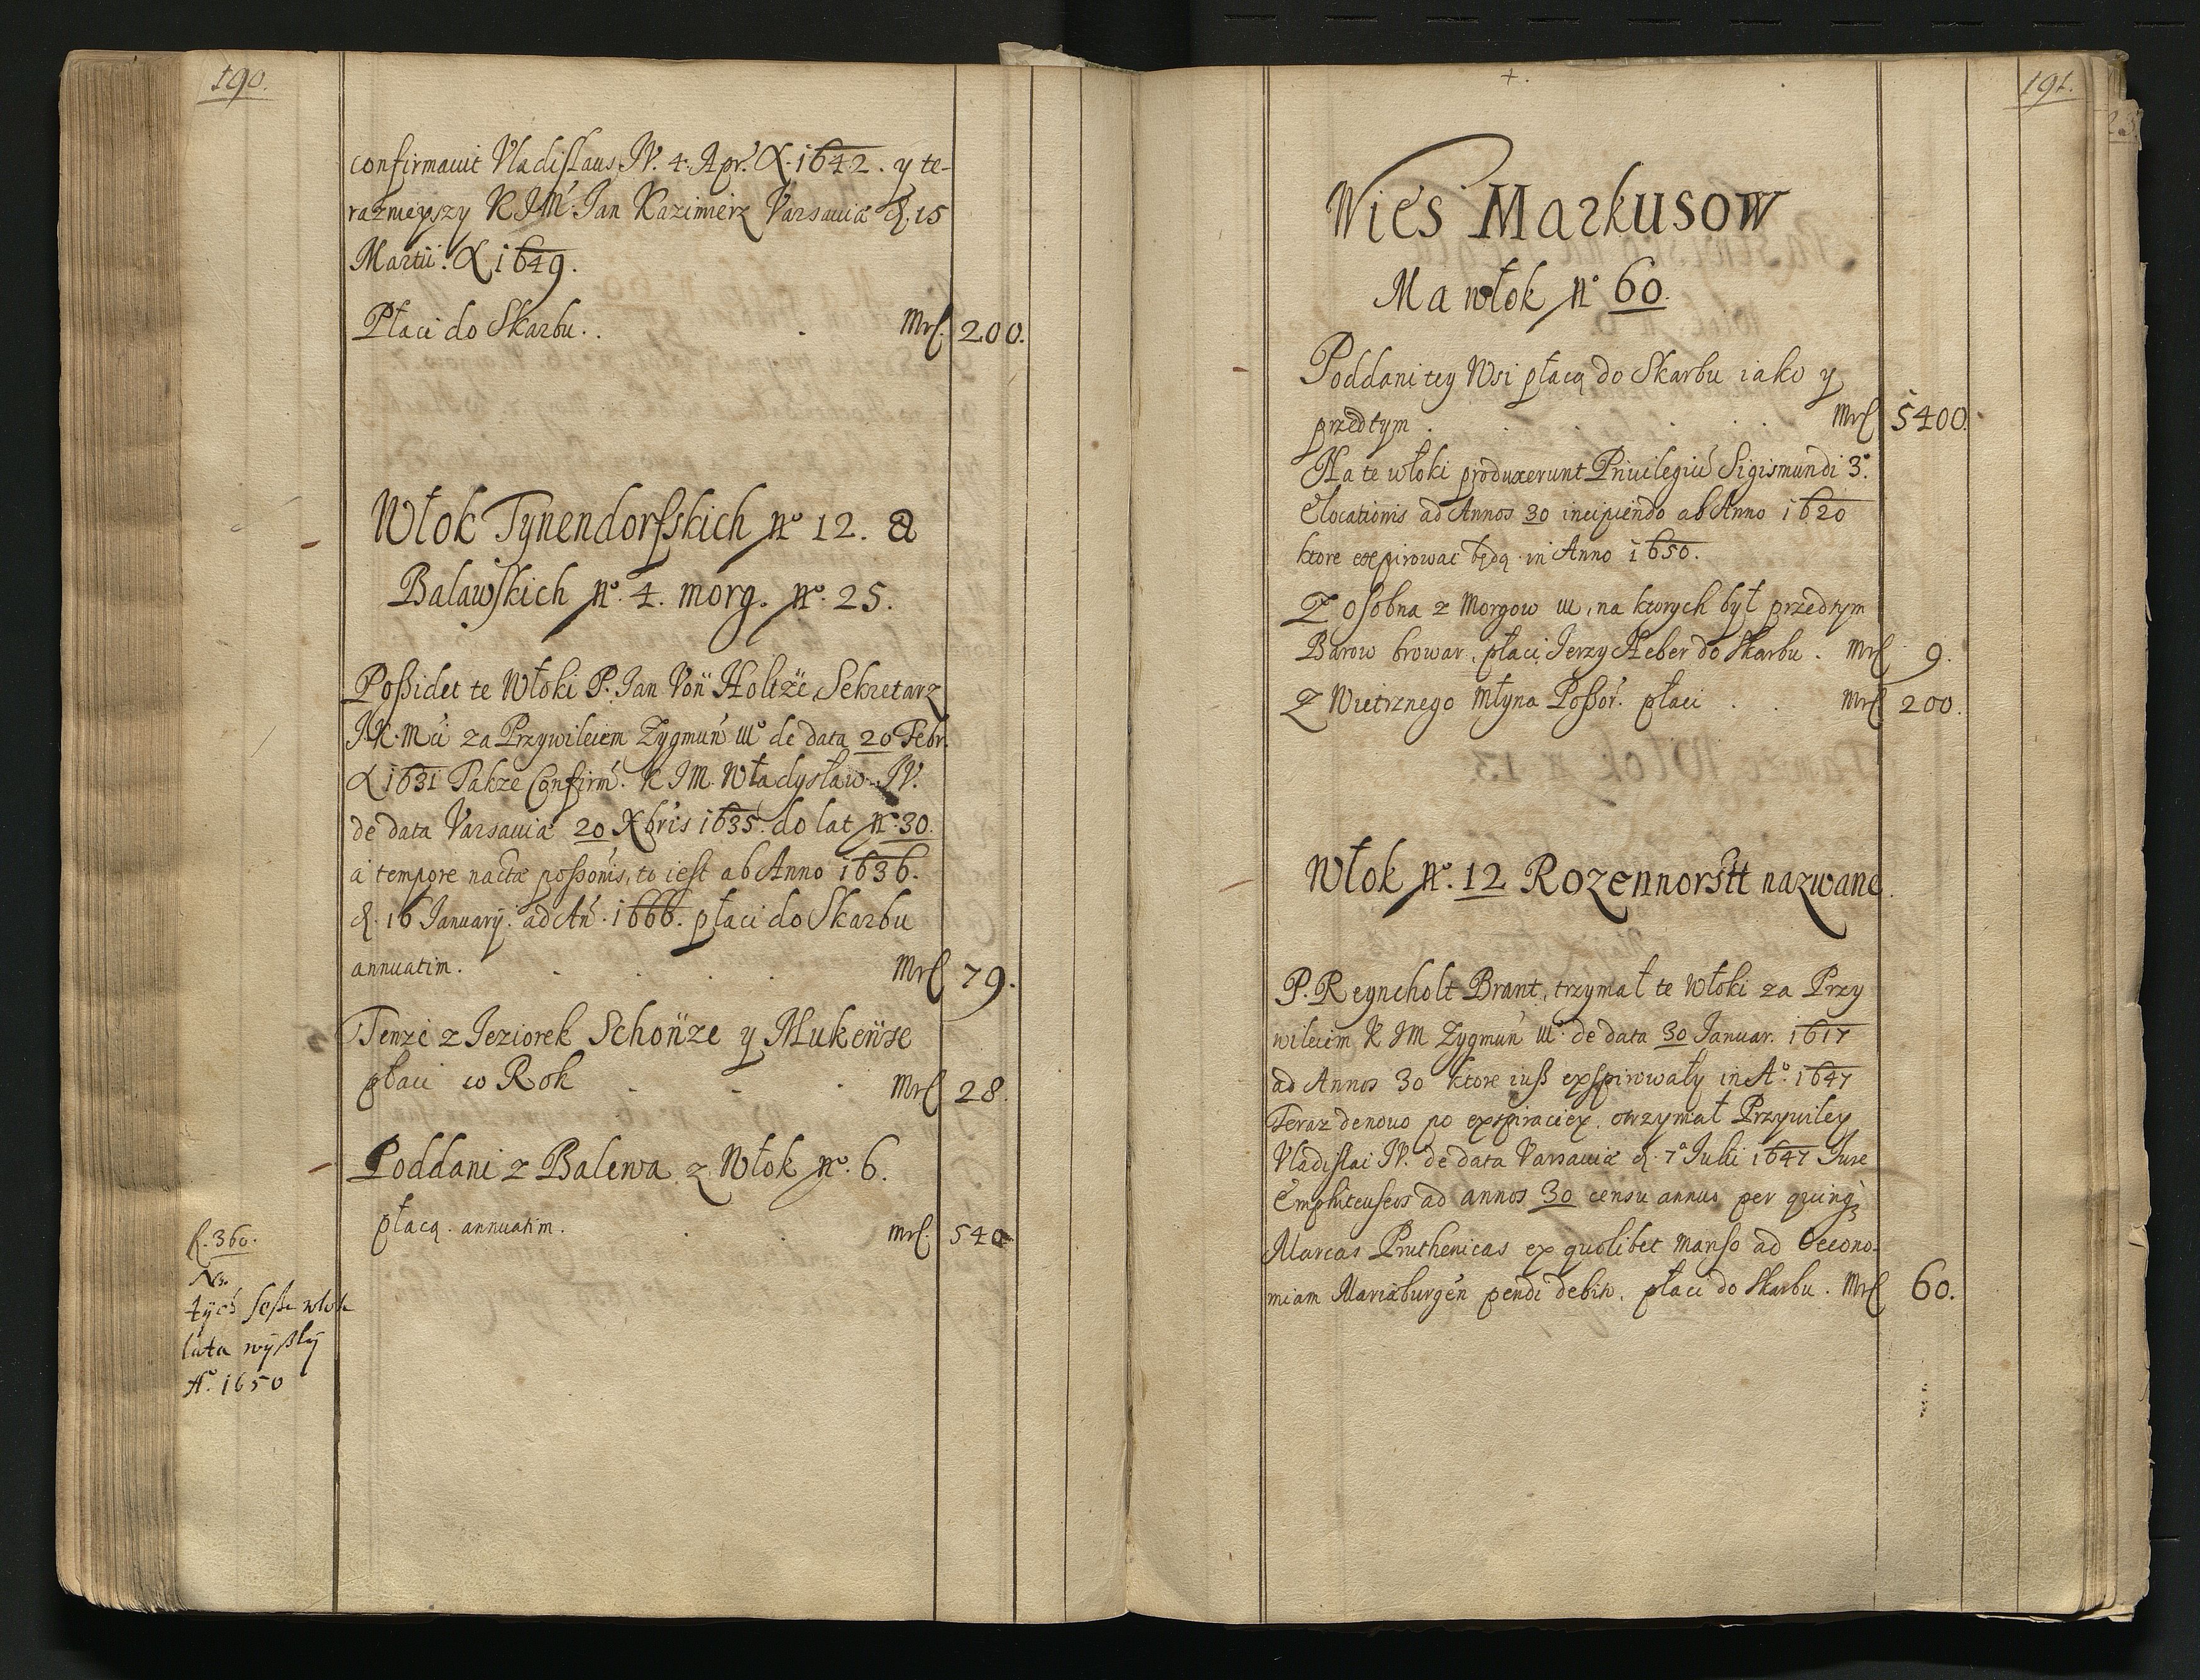 190.
confirmauit Vladislaus IV. 4. Apr. A. 1642. y te-
raznieyszy K I M. Jan Kazimierz Varsauiæ d. 15
Martii. A 1649.
Płaci do Skarbu. . . Mrl. 200.
Włok Tynendorfskich No 12. a
Balawskich No. 4. morg. No. 25.
Possidet te Włoki P. Jan Von Holtze Sekretarz
J. K. Mći za Przywileiem Zygmuń III° de data 20 Febr.
A 1631 Takze Confirm. K I M. Władysław. IV.
de data Varsauiæ 20 Xbris 1635. do lat No. 30.
a tempore nactæ possonis, to iest ab Anno 1636.
d. 16 January. ad Añ. 1666. płaci do Skarbu
annuatim. . . . . Mrl 79.
Tenze z Jeziorek Schonze y Mukense
płaci w Rok . . . Mrl 28.
Poddani z Balewa z Włok No. 6.
płacą. annuatim. . . Mrl. 540
f. 360.
Nb.
tych sesc włok
lata wyszly
A° 1650
191.
+.
Wies Markusow
Ma włok No 60.
Poddani tey Wsi płacą do Skarbu iako y
przedtym . . . . . Mrl 5400.
Na te włoki produxerunt Priuilegiu Sigismundi 3.
Elocationis ad Annos 30 incipiendo ab Anno 1620
ktore expirowac będą in Anno 1650.
Z osobna z Morgow III, na ktorych był przedtym
Barow browar, płaci Jerzy Heber do Skarbu. Mrl 9.
Z Wietrznego Młyna Possor. płaci . . Mrl 200.
Włok No. 12 Rozennorstt nazwane.
P. Reyncholt Brant, trzymał te Włoki za Przy
wileiem K I M Zygmuń III° de data 30 Januar. 1617
ad Annos 30 ktore iuss exspirowały in A°. 1647
Teraz denouo po expiraciey. otrzymał Przywiley
Vladislai IV. de data Varsauiæ d. 7° Julii 1647 Jure
Emphiteuseos ad annos 30 censu annuo per quinq3
Marcas Pruthenicas ex quolibet Manso ad Oecono-
miam Mariæburgeń pendi debito, płaci do Skarbu. Mrl 60.